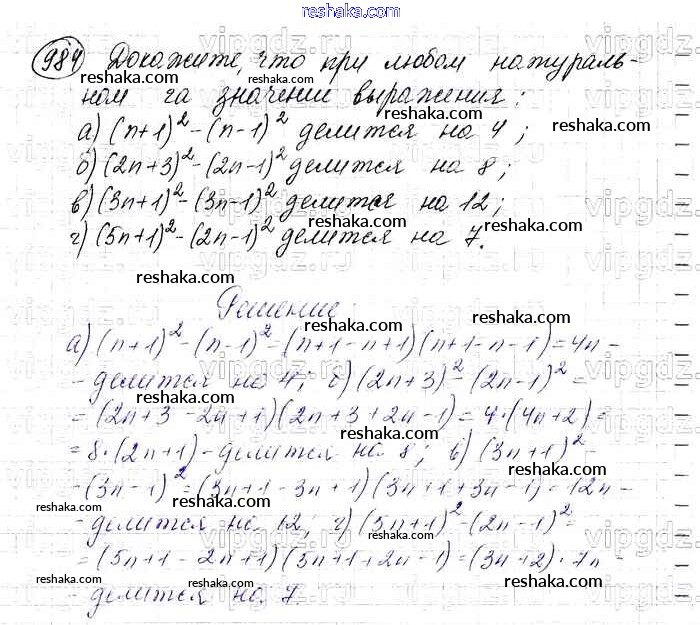 reshaka.com
984 Докажите, что при любом натураль-
reshaka.com
reshaka.com
ном n значении выражения:
а) (n+1)²-(n-1)² делится на 4;
reshaka.com
reshaka.com
б) (2n+3)²-(2n-1)² делится на 8;
reshaka.com
в) (3n+1)²-(3n-1)² делится на 12;
reshaka.com
г) (5n+1)²-(2n-1)² делится на 7.
reshaka.com
reshaka.com
Решение:
reshaka.com
а) (n+1)²-(n-1)²=(n+1-n+1)(n+1-n-1)=4n-
reshaka.com
- делится на 4; б) (2n+3)²-(2n-1)²=
reshaka.com
reshaka.com
=(2n+3-2n+1)(2n+3+2n-1)=4·(4n+2)=
reshaka.com
=8·(2n+1)-делится на 8; в) (3n+1)²-
reshaka.com
-(3n-1)²=(3n+1-3n+1)(3n+1+3n-1)=12n-
reshaka.com
reshaka.com
- делится на 12, г) (5n+1)²-(2n-1)²=
reshaka.com
=(5n+1-2n+1)(3n+1+2n-1)=(3n+2)·7n-
reshaka.com
reshaka.com
- делится на 7.
reshaka.com